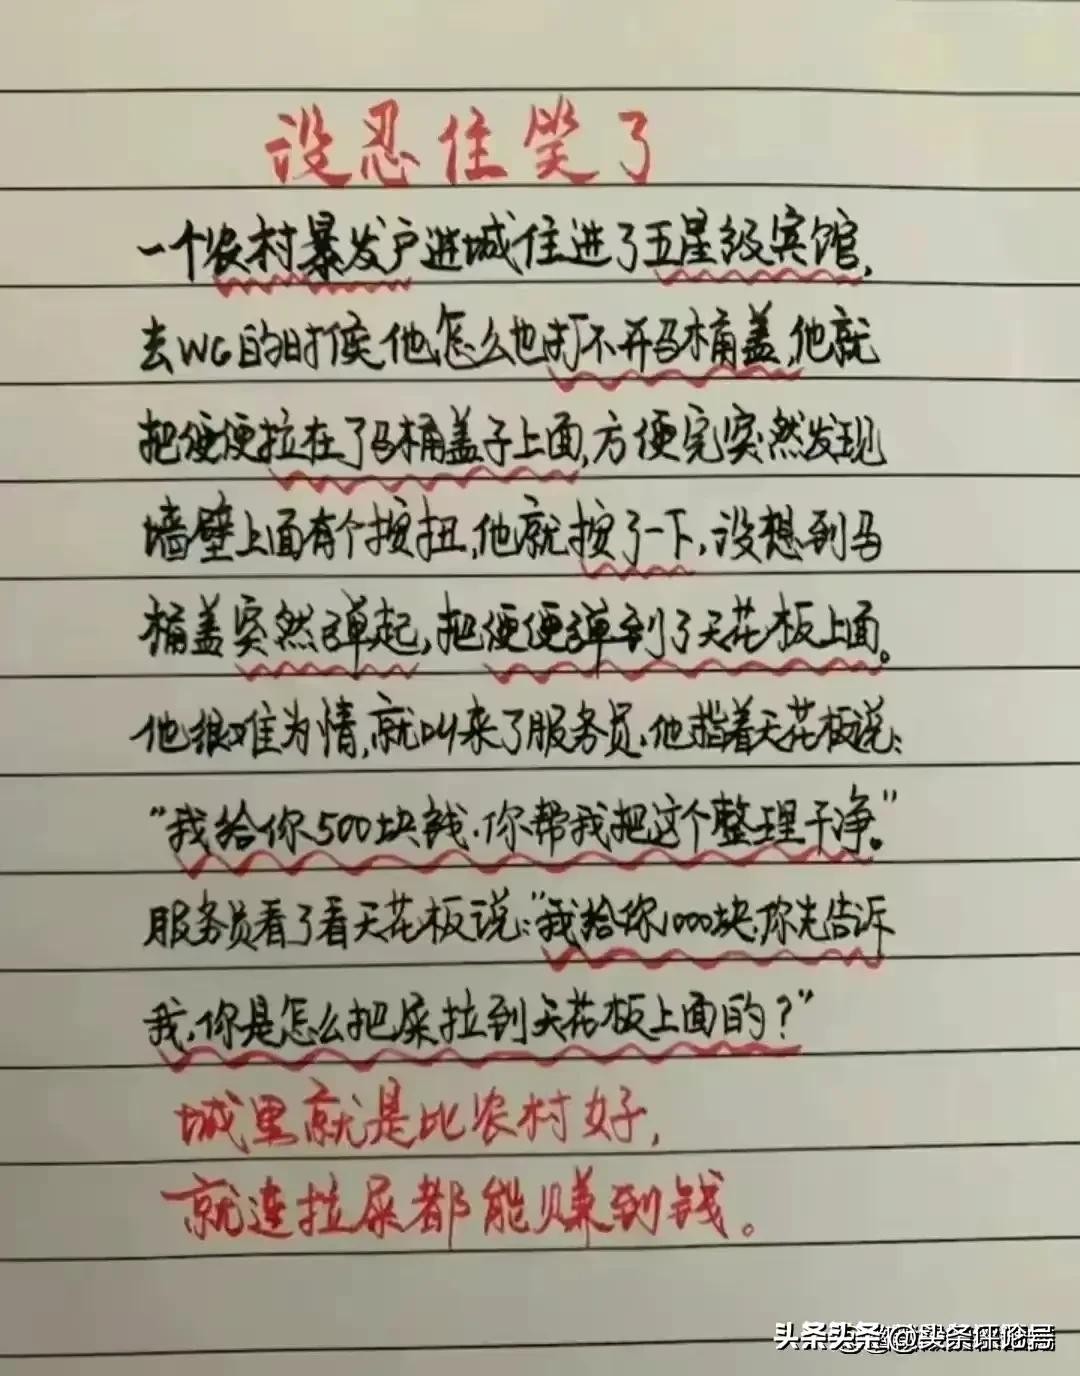 没忍住笑了
一个农村暴发户进城住进了五星级宾馆,
去WC的时侯,他怎么也打不开马桶盖,他就
把便便拉在了马桶盖子上面,方便完突然发现
墙壁上面有个按扭,他就按了一下,没想到马
桶盖突然弹起,把便便弹到了天花板上面。
他很难为情,就叫来了服务员,他指着天花板说:
“我给你500块钱,你帮我把这个整理干净。”
服务员看了看天花板说:“我给你1000块,你先告诉
我,你是怎么把屎拉到天花板上面的?”
城里就是比农村好,
就连拉屎都能赚到钱。
头条头条@头条评论局